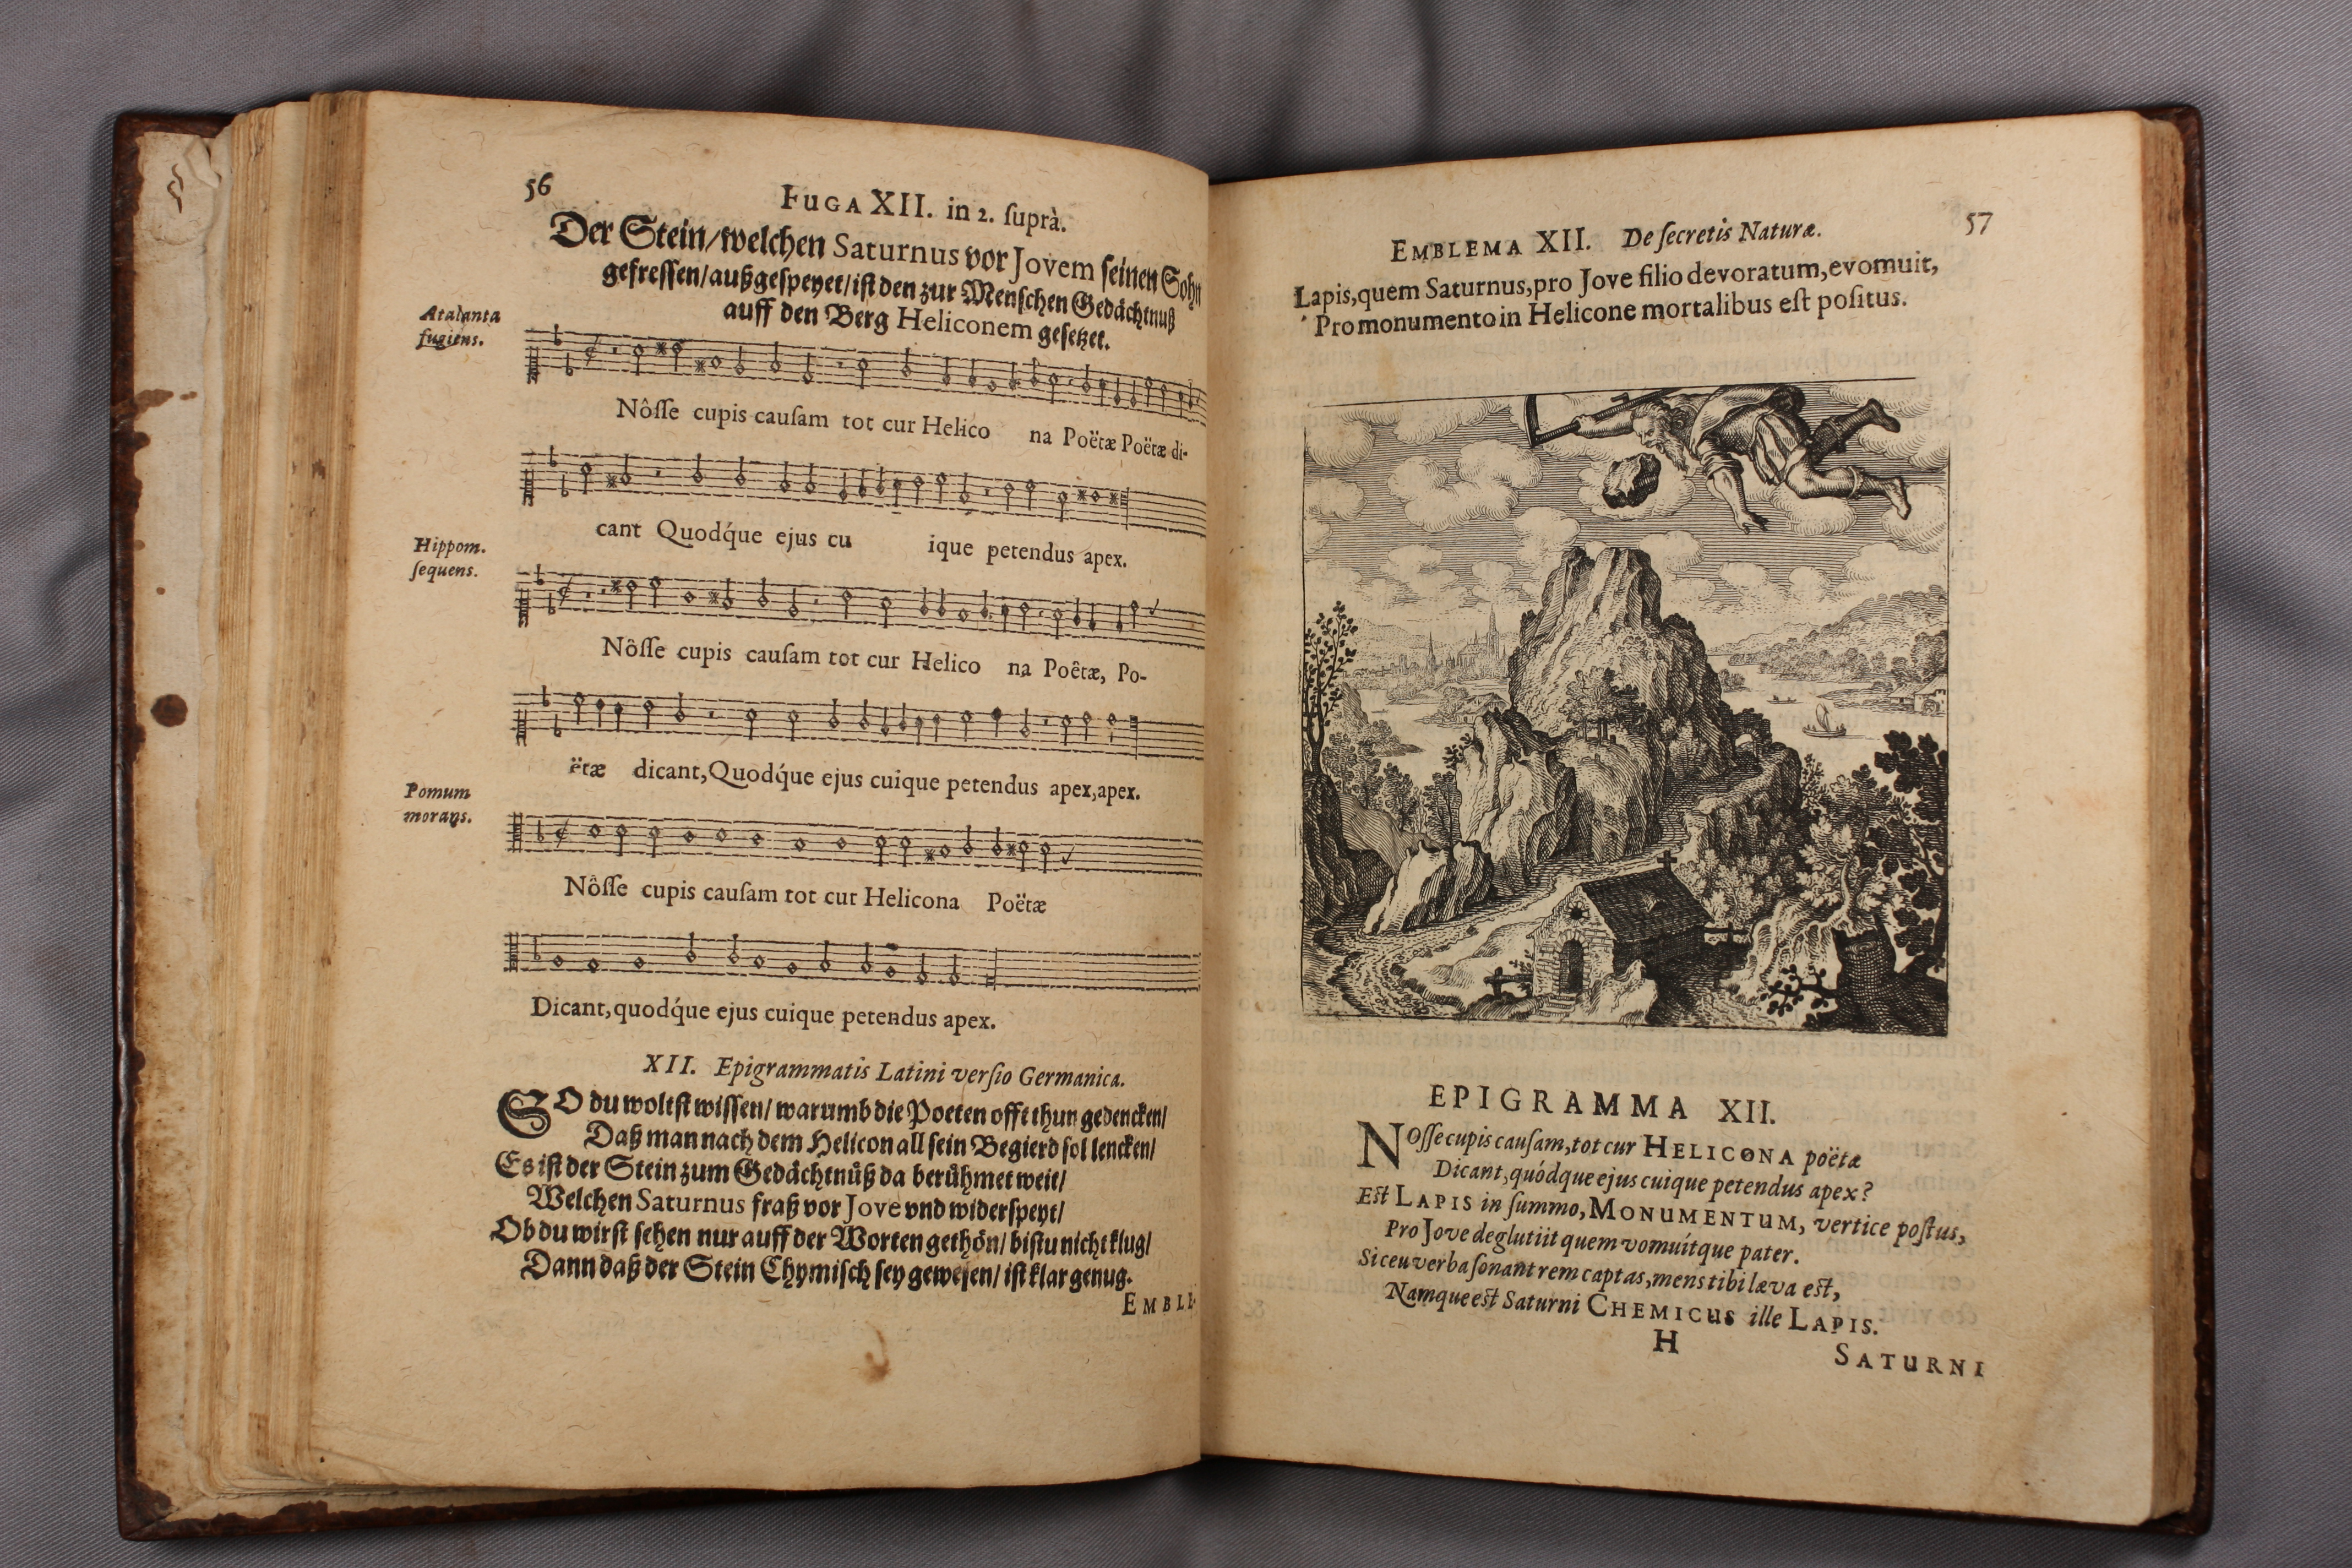 56
FUGA XII. in 2. ſuprà.
Der Stein/welchen Saturnus vor Jovem ſeinen Sohn
gefreſſen/außgeſpeyet/iſt den zur Menſchen Gedächtnuß
auff den Berg Heliconem geſetzet.
Atalanta
fugiens.
Nôſſe cupis cauſam tot cur Helico na Poëtæ Poëtæ di-
cant Quodq́ue ejus cu ique petendus apex.
Hippom.
ſequens.
Nôſſe cupis cauſam tot cur Helico na Poêtæ, Po-
ëtæ dicant, Quodq́ue ejus cuique petendus apex, apex.
Pomum
morans.
Nôſſe cupis cauſam tot cur Helicona Poëtæ
Dicant, quodq́ue ejus cuique petendus apex.
XII. Epigrammatis Latini verſio Germanica.
SO du woltſt wiſſen/ warumb die Poeten offt thun gedencken/
Daß man nach dem Helicon all ſein Begierd ſol lencken/
Es iſt der Stein zum Gedächtnüß da berühmet weit/
Welchen Saturnus fraß vor Jove vnd widerſpeyt/
Ob du wirſt ſehen nur auff der Worten gethön/ biſtu nicht klug/
Dann daß der Stein Chymiſch ſey geweſen/ iſt klar genug.
EMBLE-
57
EMBLEMA XII. De ſecretis Naturæ.
Lapis, quem Saturnus, pro Jove filio devoratum, evomuit,
Pro monumento in Helicone mortalibus eſt poſitus.
EPIGRAMMA XII.
NOſſe cupis cauſam, tot cur HELICONA poëtæ
Dicant, quódque ejus cuique petendus apex?
Eſt LAPIS in ſummo, MONUMENTUM, vertice poſtus,
Pro Jove deglutiit quem vomuítque pater.
Si ceu verba ſonant rem captas, mens tibi læva eſt,
Namque eſt Saturni CHEMICUS ille LAPIS.
H
SATURNI